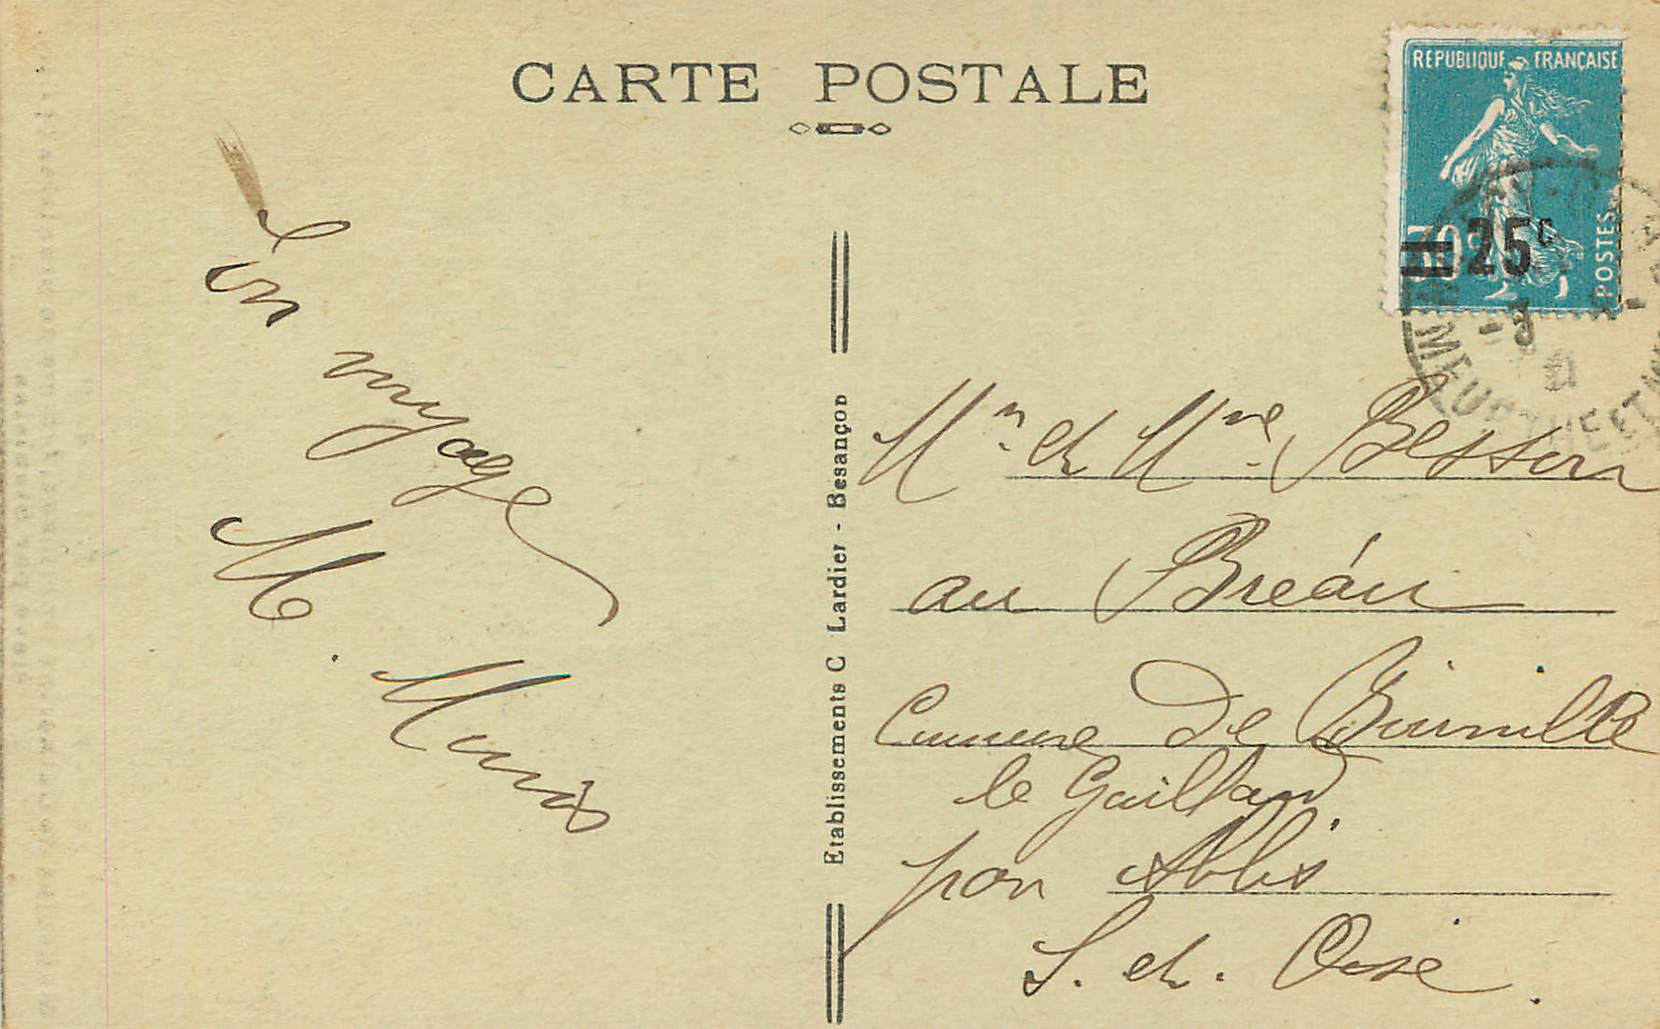 CARTE POSTALE
REPUBLIQUE FRANÇAISE
POSTES
30c
25c
En voyage
M. Munos
Etablissements C Lardier - Besançon
Mr et Mme Besson
au Bréau
Commune de Boinville
le Gaillard
par Ablis
S. et. Oise.